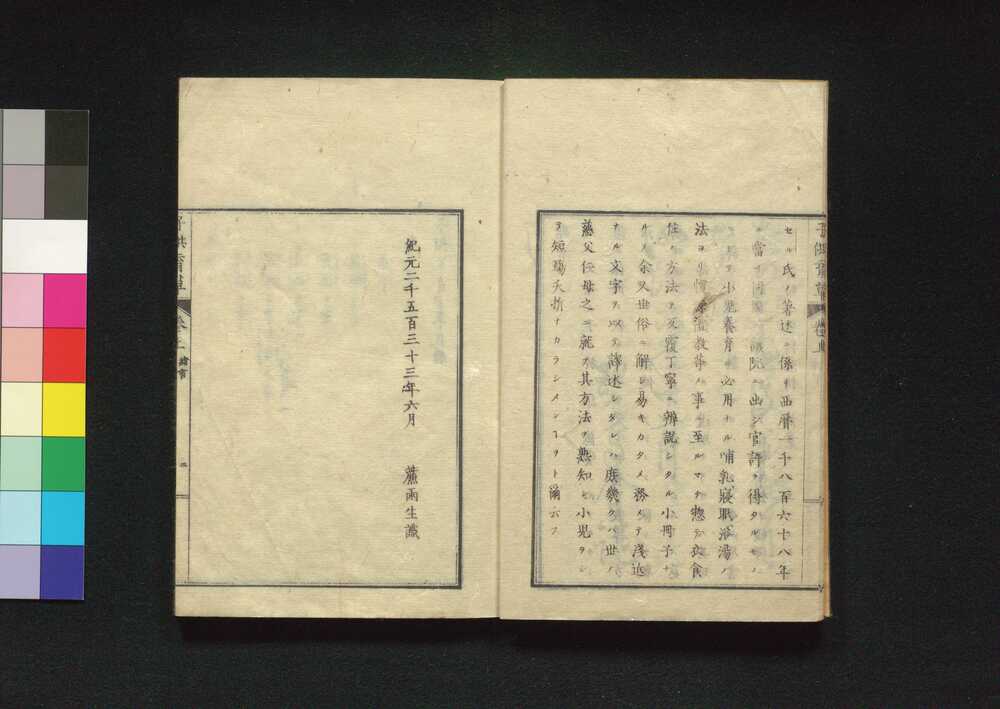 セル氏ノ著述ニ係リ西暦一千八百六十八年
ニ當リ醫院ニ出シ官許ヲ得タルモノ
ニテ小児養育ニ必用ナル哺乳寝眠浴湯ノ
法ヨリ教等ノ事ニ至ルマデ惣テ衣食
住ノ方法ヲ反覆丁寧ニ辨説シタル小冊子ナ
ルノ余又世俗ニ解シ易キカタメ務メテ淺近
ナル文字ヲ以テ譯述シタレハ庶幾クハ世ノ
慈父仁母之ニ就テ其方法ヲ熟知セ小児ヲシ
テ短殤夭折ナカラシメンヿヲト爾云フ
子供育草
紀元二千五百三十三年六月 蘆雨生識
子供育草